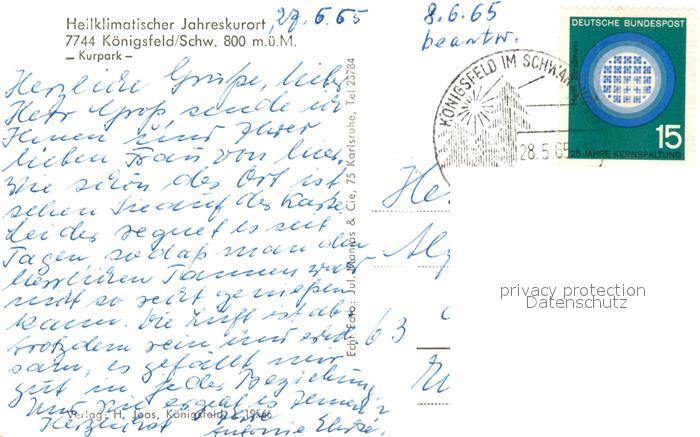 Heilklimatischer Jahreskurort
7744 Königsfeld/Schw. 800 m.ü.M.
— Kurpark —
27.6.65
8.6.65
beantw.
Herzliche Grüße, lieber
Herr Groß, sende ich
Ihnen und Ihrer
lieben Frau von hier.
Wie schön der Ort ist
sehen Sie auf der Karte
Leider regnet es seit
Tagen, so daß man die
herrlichen Tannen
nicht so recht genießen
kann. Die Luft ist aber
trotzdem rein und
es gefällt mir
gut in jeder Beziehung.
Und wie ergeht es Ihnen?
Herzlichst Ihre
Antonie
Verlag: H. Joos, Königsfeld L 19566
Echt Foto: Jul. Manias & Cie, 75 Karlsruhe, Tel 23784
KÖNIGSFELD IM SCHWARZ
28.5.65
DEUTSCHE BUNDESPOST
15
25 JAHRE KERNSPALTUNG
63
privacy protection
Datenschutz